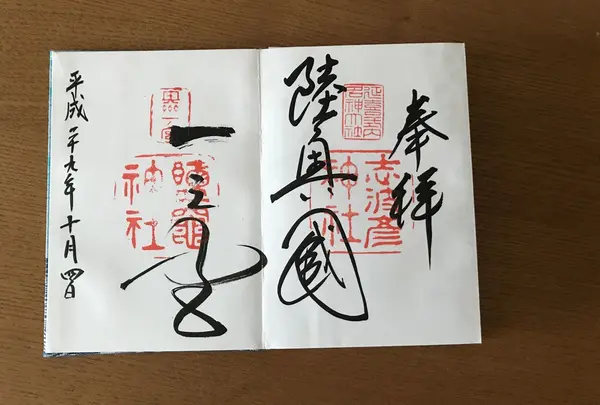 奉拝
延喜式内名神大社
志波彦神社
陸奥國
一之宮
鹽竈神社
平成二十九年十月四日